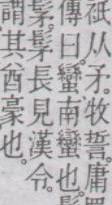 祗从矛。牧誓。庸
傳曰。蠻南蠻也。
髳。髳長見漢令。
謂其酋豪也。